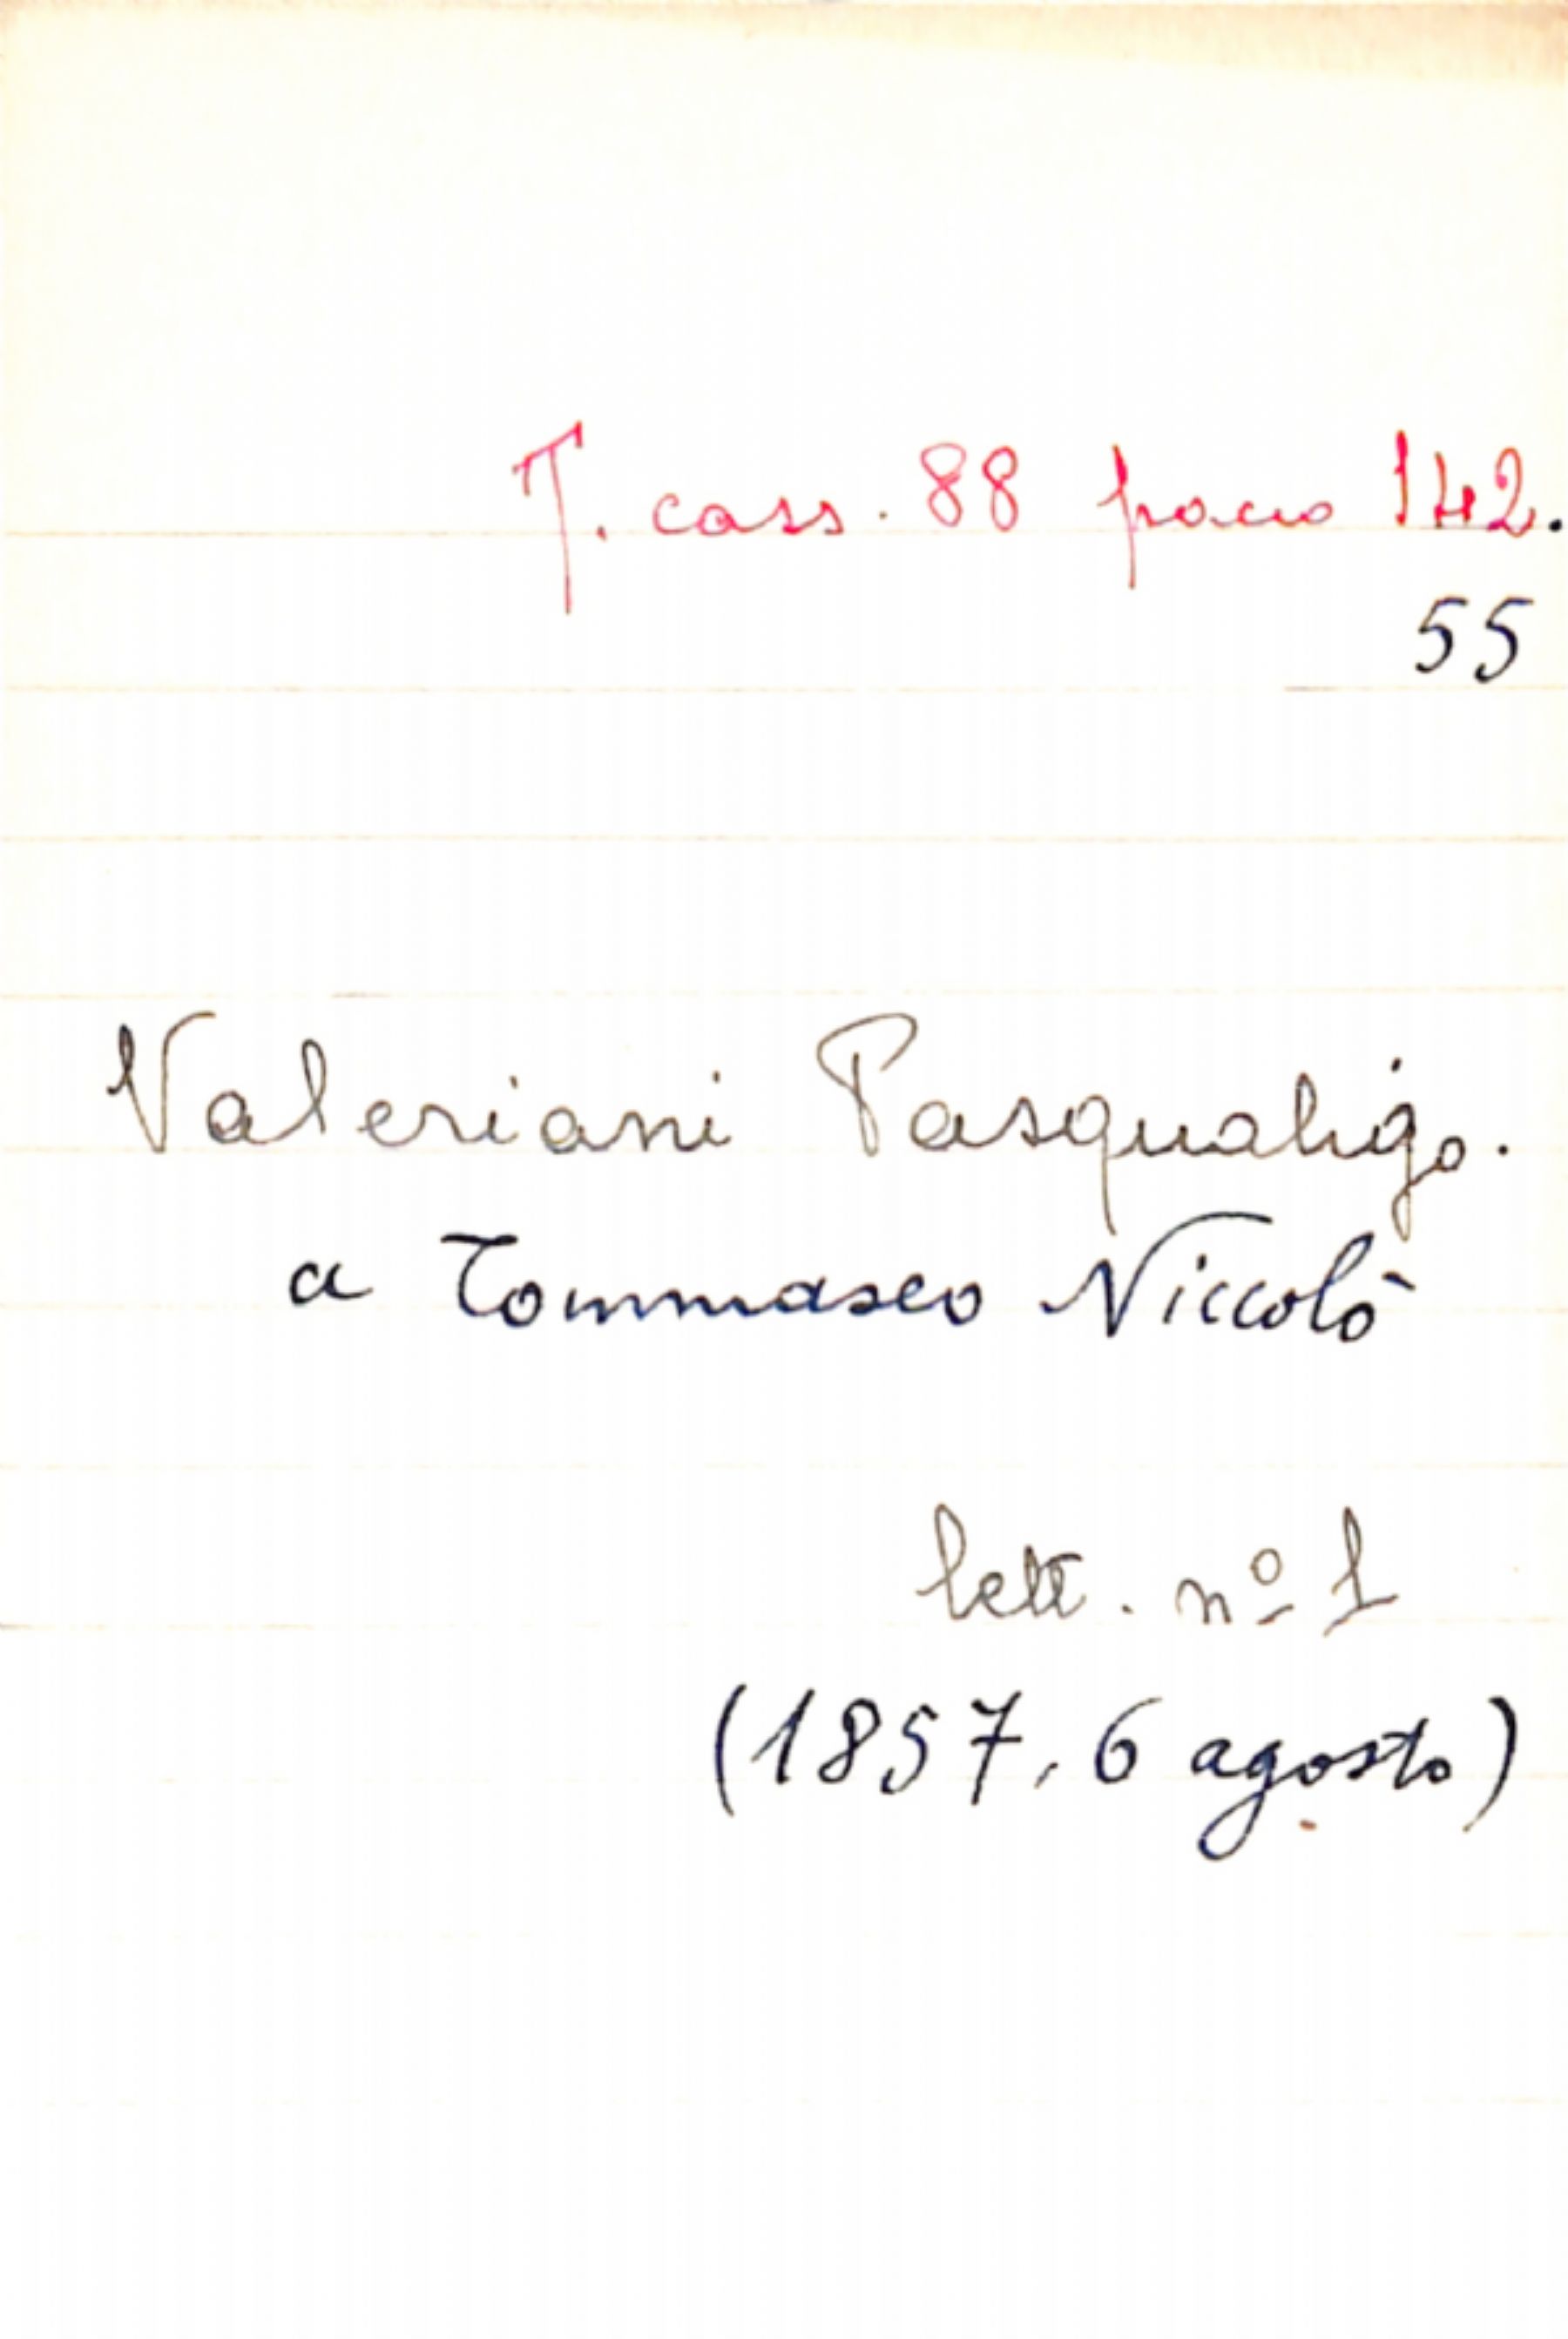 T. cass. 88 pacco 142.
55
Valeriani Pasqualigo.
a Tommaseo Niccolò
lett. nº 1
(1857, 6 agosto)